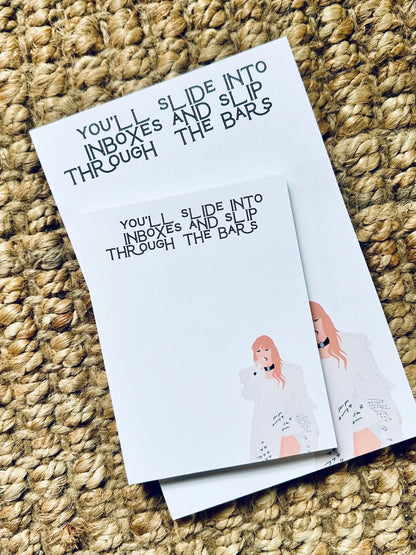 YOU'LL SLIDE INTO
INBOXES AND SLIP
THROUGH THE BARS
YOU'LL SLIDE INTO
INBOXES AND SLIP
THROUGH THE BARS